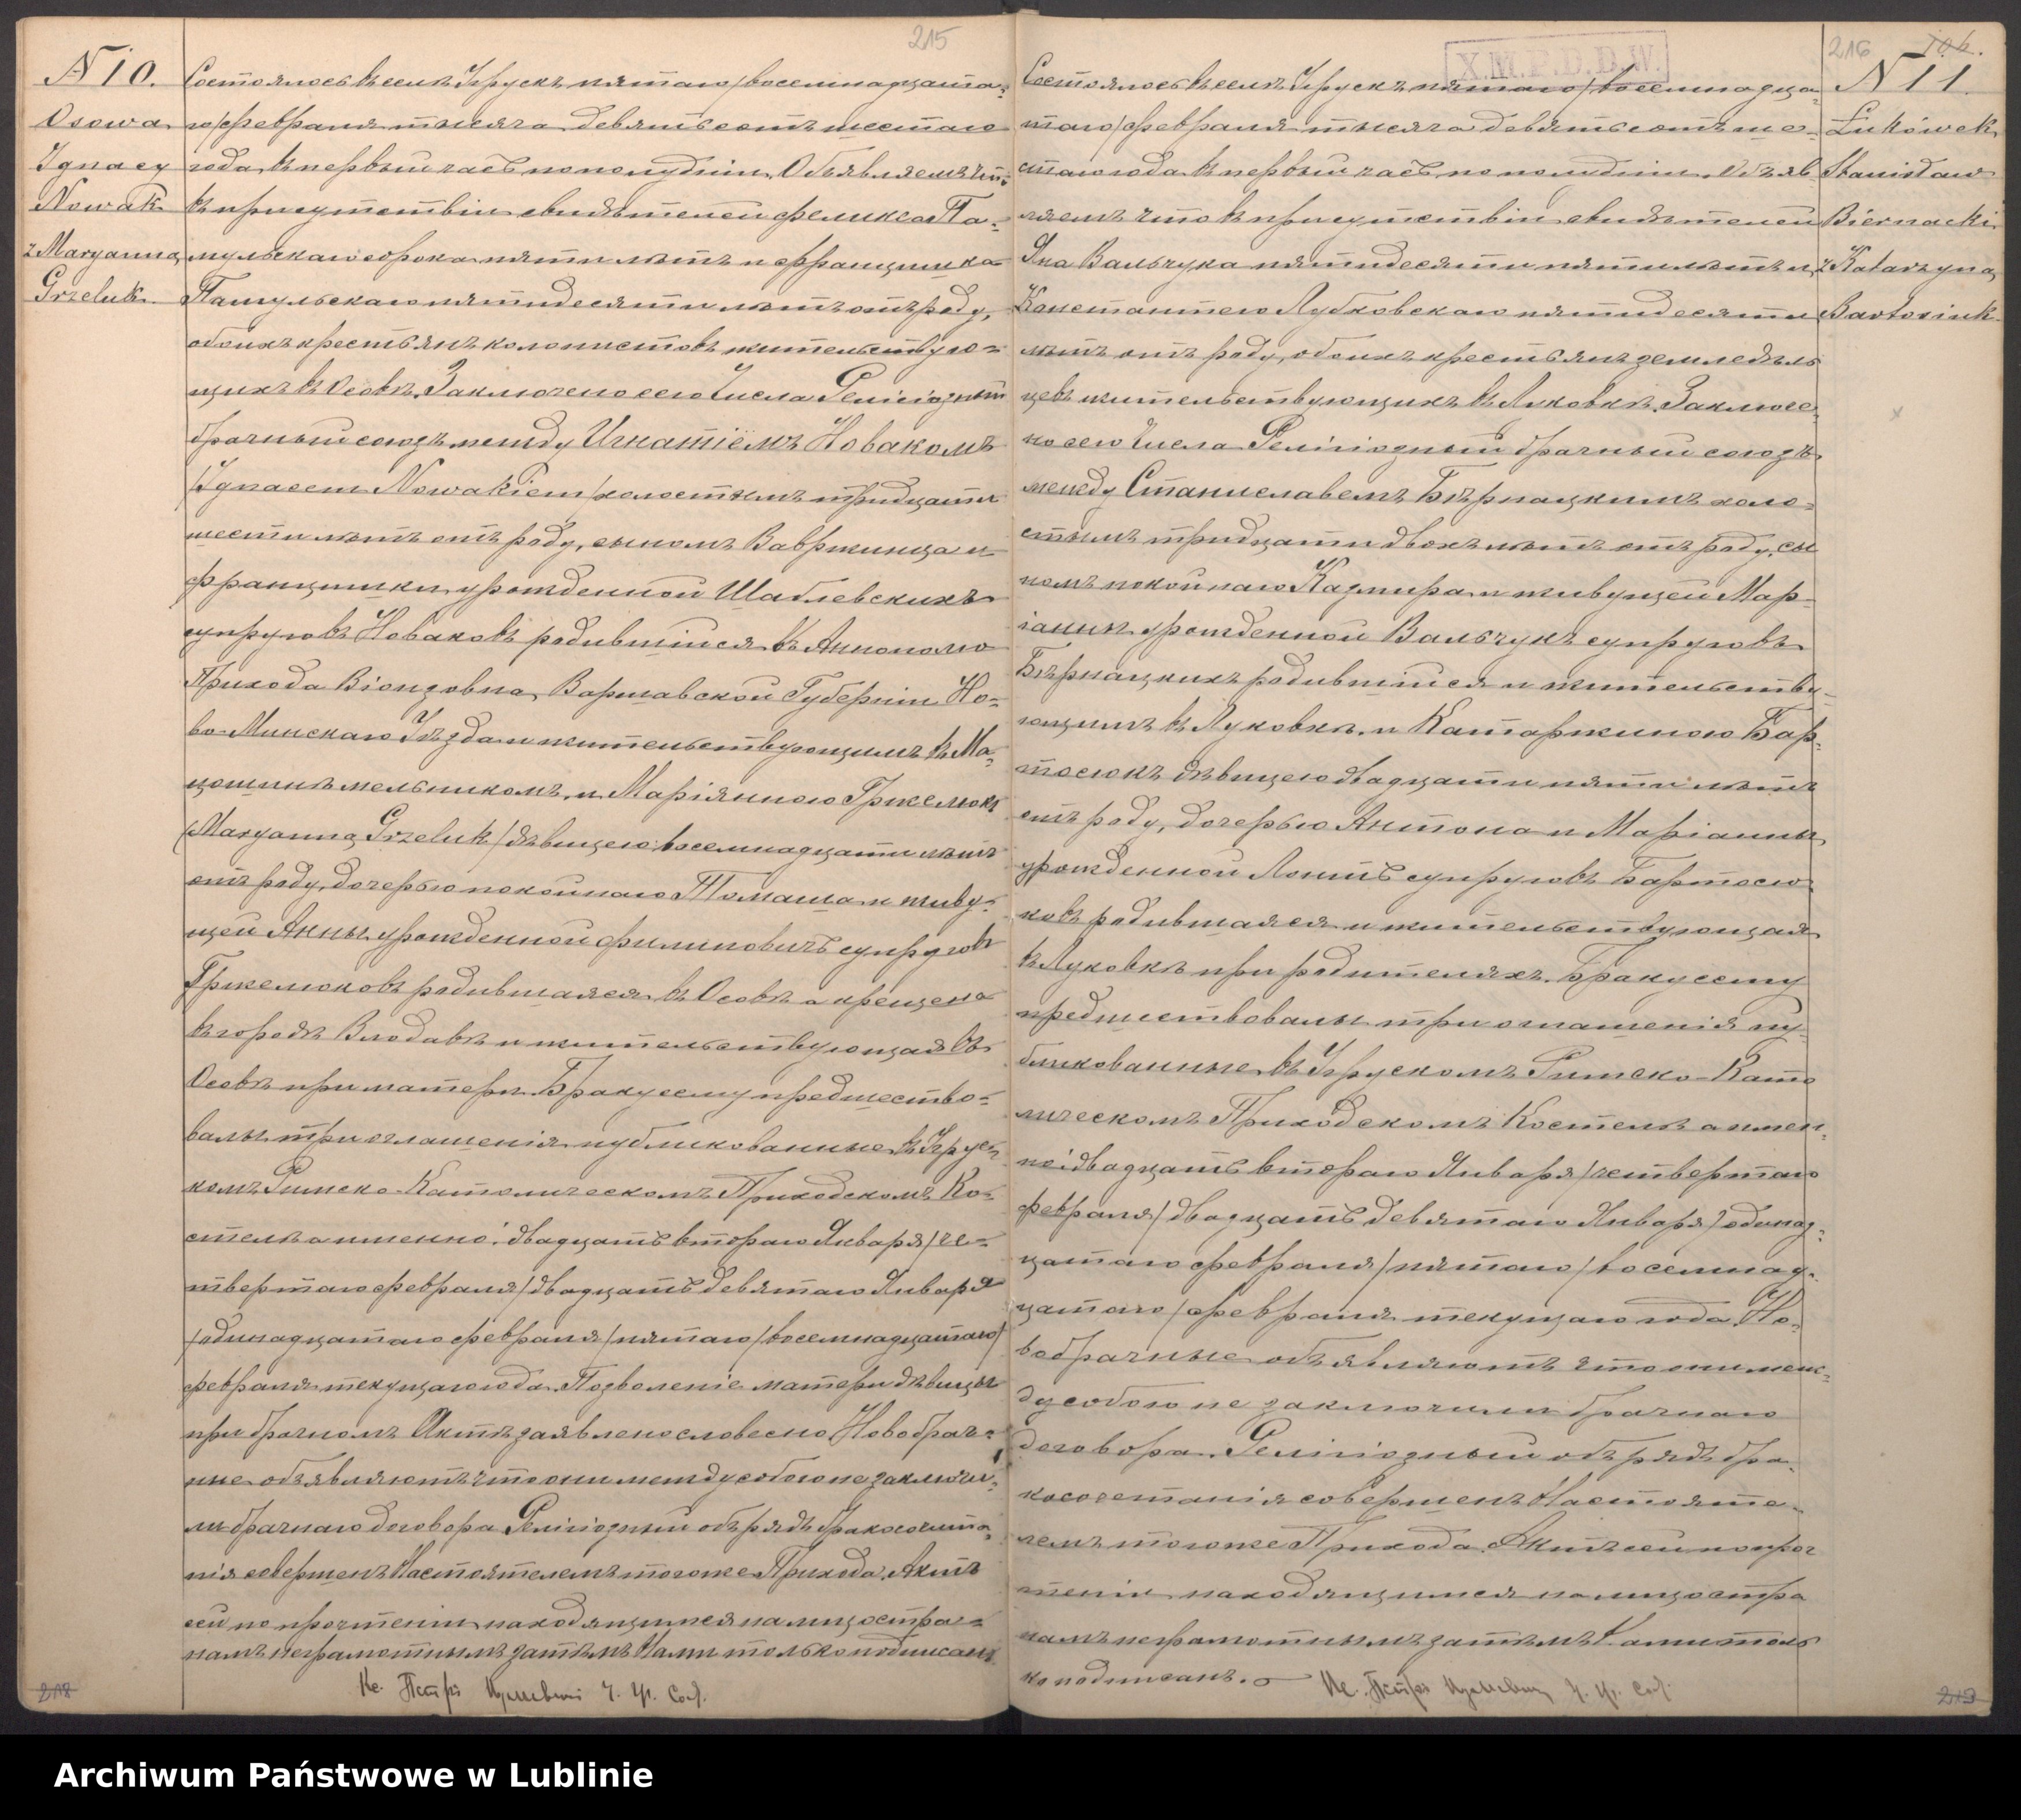 215
N 10.
Osowa
Ignacy
Nowak
z Maryanną
Grzeluk
Состоялось въ селѣ Угрускѣ пятаго /восемнадцата-
го/ февраля тысяча девятьсотъ шестаго
года, въ первый часъ по полудни. Объявляемъ что
въ присутствіи свидѣтелей Феликса Па-
мульскаго сорока пяти лѣтъ и Францишка
Памульскаго пятидесяти лѣтъ отъ роду,
обоихъ крестьянъ колонистовъ жительствую-
щихъ въ Осовѣ, Заключено сего Числа Религіозный
брачный союзъ между Игнатіёмъ Новакомъ
/Ignacem Nowakiem/ холостымъ тридцати
шести лѣтъ отъ роду, сыномъ Вавржинца и
Францишки урожденной Шаблевскихъ
супруговъ Новаковъ родившійся въ Аннополю
Прихода Віонзовна, Варшавской Губерніи Но-
во-Минскаго Уѣзда и жительствующимъ въ Ма-
цошинѣ мельникомъ, и Маріянною Гржелюкъ
/Maryanną Grzeluk/ дѣвицею восемнадцати лѣтъ
отъ роду, дочерью покойнаго Томаша и живу-
щей Анны урожденной Филиповичъ супруговъ
Гржелюковъ родившаяся въ Осовѣ а крещена
въ городѣ Влодавѣ и жительствующая въ
Осовѣ при матери. Браку сему предшество-
валы три оглашенія публикованные въ Угрус-
комъ Римско-Католическомъ Приходскомъ Ко-
стелѣ а именно: двадцать втораго Января /че-
твертаго февраля/ двадцать девятаго Января
/одинадцатаго февраля/ пятаго /восемнадцатаго/
февраля текущаго года. Позволеніе матери дѣвицы
при брачномъ Актѣ заявлено словесно. Новобрач-
ные объявляютъ что они между собою не заключи-
ли брачнаго договора. Религіозный обрядъ бракосочета-
нія совершенъ Настоятелемъ тогоже Прихода. Актъ
сей по прочтеніи находящимся на лицо сторо-
намъ неграмотнымъ затѣмъ Нами только подписанъ.
Кс. Петръ
218
216
N 11.
Łukówek
Stanisław
Biernacki
z Katarzyną
Bartosiuk
X.M.P.D.D.W.
Состоялось въ селѣ Угрускѣ пятаго /восемнадца-
таго/ февраля тысяча девятьсотъ ше-
стаго года въ первый часъ по полудни. Объяв-
ляемъ что въ присутствіи свидѣтелей
Яна Вальчука пятидесяти пяти лѣтъ и
Константего Лубковскаго пятидесяти
лѣтъ отъ роду, обоихъ крестьянъ земледѣль
цевъ жительствующихъ въ Луковкѣ. Заключе-
но сего Числа Религіозный брачный союзъ
между Станиславемъ Бѣрнацкимъ холо-
стымъ тридцати двохъ лѣтъ отъ роду, сы
номъ покойнаго Казмира и живущей Мар-
іанны урожденной Вальчукъ супруговъ
Бѣрнацкихъ родившійся и жительству-
ющимъ въ Луковкѣ, и Катаржиною Бар-
тосюкъ дѣвицею двадцати пяти лѣтъ
отъ роду, дочерью Антона и Маріанны
урожденной Лопить супруговъ Бартосю
ковъ родившаяся и жительствующая
въ Луковкѣ при родителяхъ. Браку сему
предшествовалы три оглашенія пу-
бликованные въ Угрускомъ Римско-Като
лическомъ Приходскомъ Костелѣ а имен-
но: двадцать втораго Января /четвертаго
февраля/ двадцать девятаго Января /одинад-
цатаго февраля/ пятаго /восемнад-
цатаго/ февраля текущаго года. Но-
вобрачные объявляютъ что они меж-
ду собою не заключили брачнаго
договора. Религіозный обрядъ бра-
косочетанія совершенъ Настояте-
лемъ тогоже Прихода. Актъ сей по проч
теніи находящимся на лицо сторо
намъ неграмотнымъ затѣмъ Нами толь
ко подписанъ.
Кс. Петръ
219
Archiwum Państwowe w Lublinie